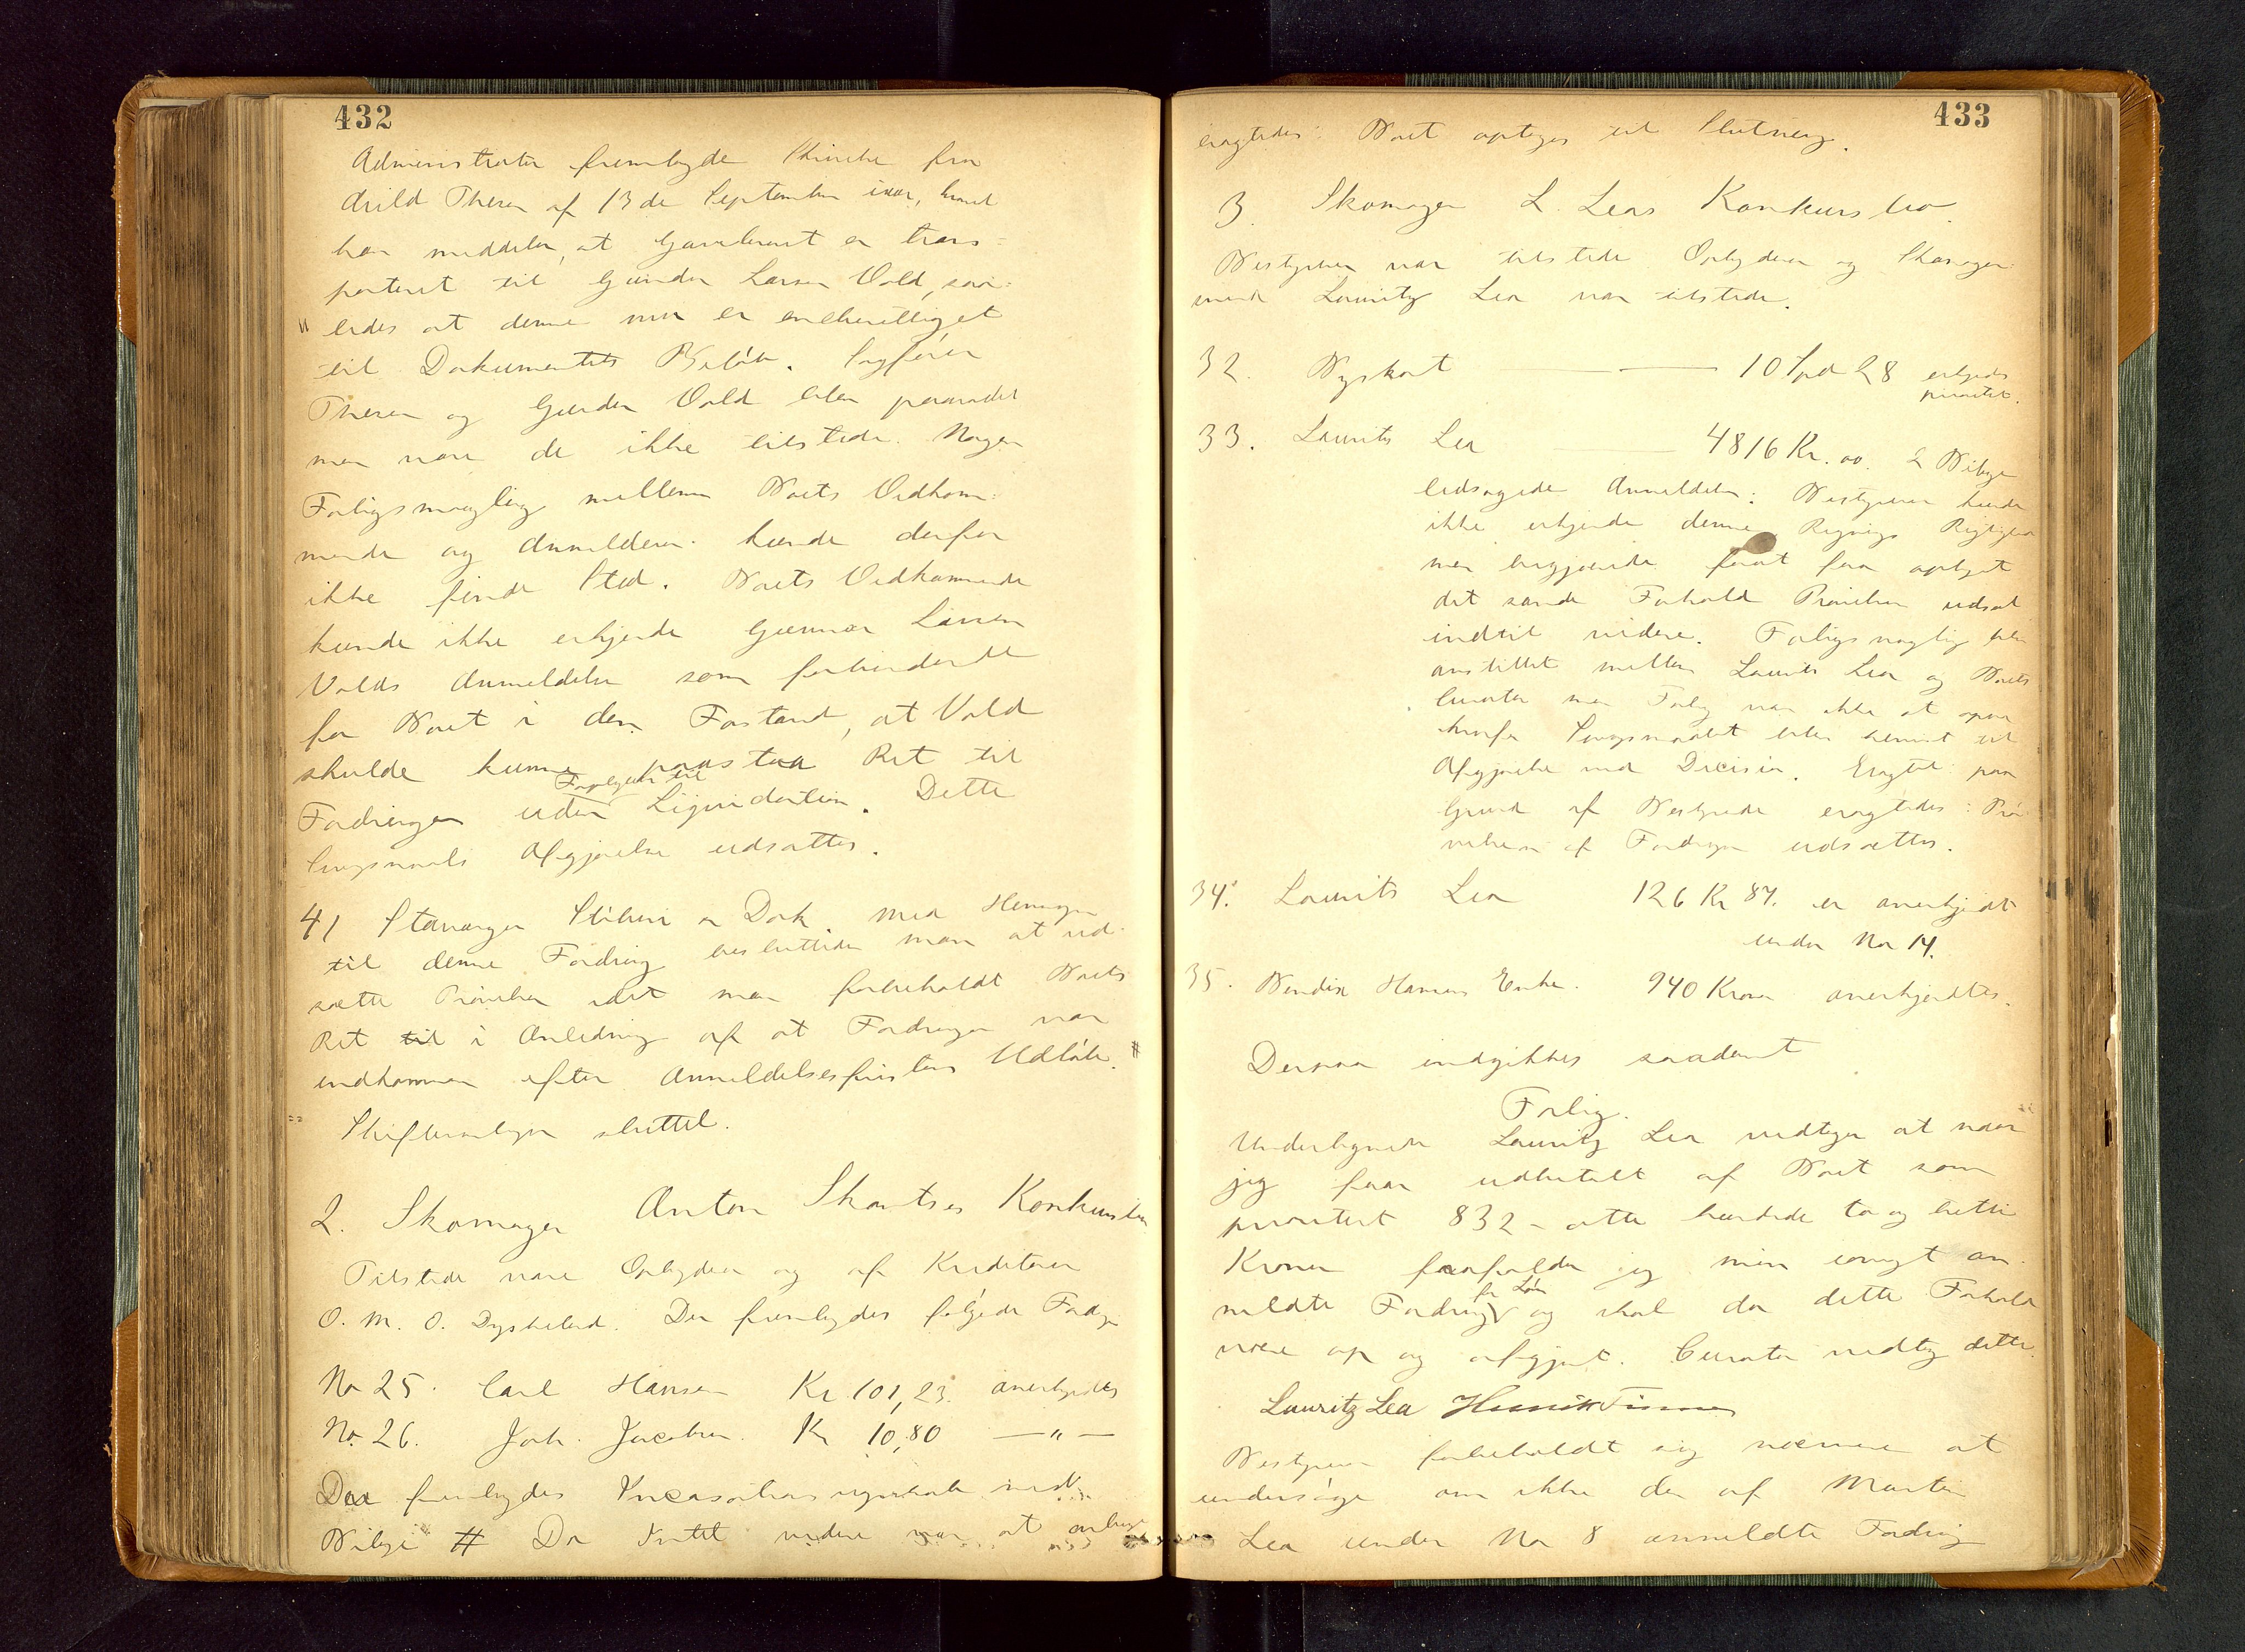 432
Administrator fremlagde Skrivelse fra
Arild Thesen af 13de September ivar, hvori
han meddeler, at Gjældsbevist er trans=
porteret til Gunder Larsen Vold, saa=
ledes at denne nu er eneberettiget
til Dokumentets Beløb. Sagfører
Thesen og Gunder Vold blev paaraabt
men vare de ikke tilstede. Nogen
Forligsmægling mellem Boets Vedkom=
mende og Anmelderen kunde derfor
ikke finde Sted. Boets Vedkommende
kunde ikke erkjende Gunnar Larsen
Volds Anmeldelse som forbindende
for Boet i den Forstand, at Vold
skulde kunne paastaa Ret til
Fordringen uden Foreløbig til Liquidation. Dette
Spørgsmaals Afgjørelse udsattes.
41 Stavanger Støberi & Dok Med Hensyn
til denne Fordring besluttede man at ud=
sætte Prøvelsen idet man forbeholdt Boets
Ret til i Anledning af at Fordringen var
indkommen efter Anmeldelsesfristens Udløb. #
Skiftesamlingen sluttet.
2. Skomager Anton Skantses Konkursbo
Tilstede vare Ombyderen og af Kreditorer
O. M. O. Dysteland. Der fremlagdes følgende Fordringer
No 25. Carl Hansen Kr. 101,23. anerkjendtes
No. 26. Joh. Jacobsen. Kr 10,80 — " —
Der fremlagdes Incasationsregnskab med
Bilag # Da Intet videre var at anbringe
433
eragtedes: Boet optages til Slutning.
3. Skomager L. Leas Konkursbo.
Bestyreren var tilstede Ombyderen og Skomager
svend Lauritz Lea var tilstede.
32. Byskat — — 10 Spd 28 erkjendt
prioritet.
33. Laurits Lea — 4816 Kr. 00. 2 Bilage
ledsagede Anmeldelsen. Bestyreren kunde
ikke erkjende denne Regnings Rigtighed
men begjærede forat faa oplyst
det sande Forhold Prøvelsen udsat
indtil videre. Forligsmægling blev
anstillet mellem Laurits Lea og Boets
Curator men Forlig var ikke at opnaa
hvorfor Spørgsmaalet blev henvist til
Afgjørelse ved Decision. Eragtet paa
Grund af Bestyrede eragtedes: Prø=
velsen af Fordringen udsættes.
34. Laurits Lea 126 Kr 87. er anerkjendt
under No 14.
35. Bendix Hansens Enke. 940 Kroner anerkjendtes.
Derpaa indgikkes saadant
Forlig.
Undertegnede Lauritz Lea vedtager at naar
jeg faar udbetalt af Boet som
prioritert 832 - otte hundrede to og tretti
Kroner frafalder jeg min øvrigt an=
meldte Fordring for Løn og skal da dette Forhold
være op og afgjort. Curator vedtog dette.
Lauritz Lea Henrik Finne
Bestyreren forbeholdt sig nærmere at
undersøge om ikke den af Martin
Lea under No 8 anmeldte Fordring